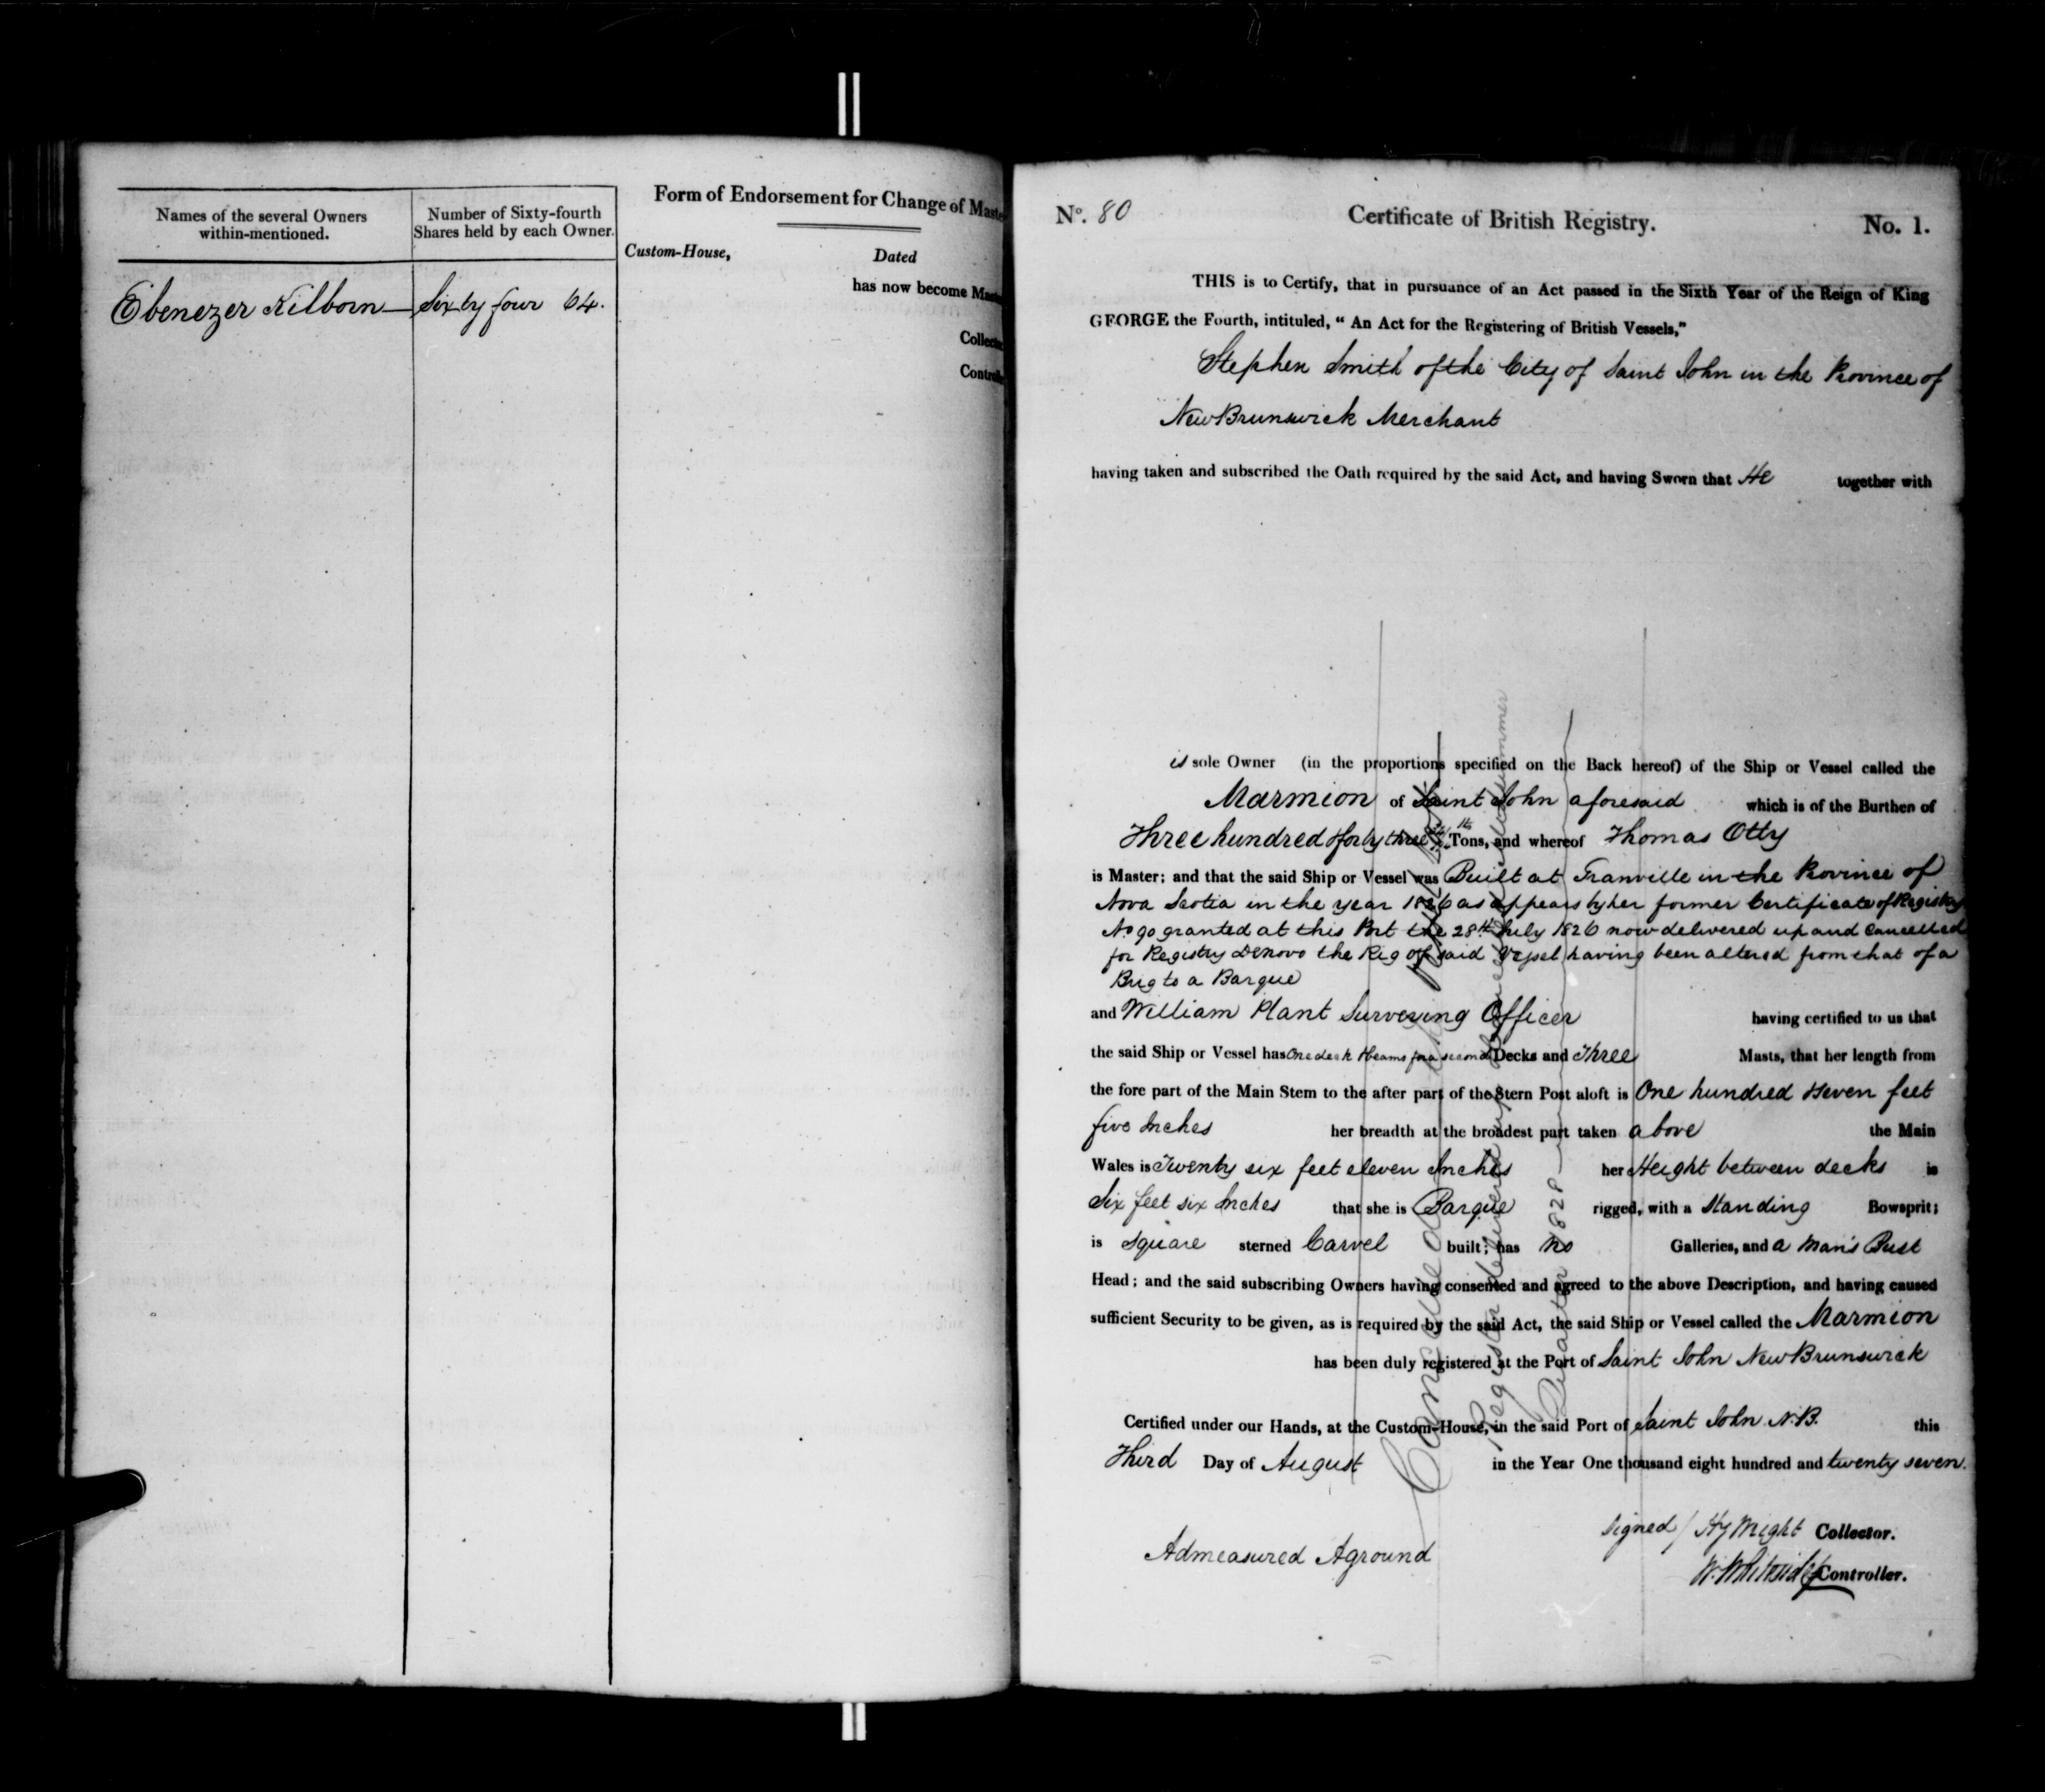 Names of the several Owners
within-mentioned.
Number of Sixty-fourth
Shares held by each Owner.
Ebenezer Kilborn — Sixty four 64.
Form of Endorsement for Change of Maste
Custom-House,
Dated
has now become Mas
Collec
Contro
No. 80
Certificate of British Registry.
No. 1.
THIS is to Certify, that in pursuance of an Act passed in the Sixth Year of the Reign of King
GEORGE the Fourth, intituled, “ An Act for the Registering of British Vessels,”
Stephen Smith of the City of Saint John in the Province of
New Brunswick Merchant
having taken and subscribed the Oath required by the said Act, and having Sworn that He together with
is sole Owner (in the proportions specified on the Back hereof) of the Ship or Vessel called the
Marmion of Saint John aforesaid which is of the Burthen of
Three hundred & forty three Tons, and whereof Thomas Otty
is Master; and that the said Ship or Vessel was Built at Granville in the Province of
Nova Scotia in the year 1826 as appears by her former Certificate of Registry
No 90 granted at this Port the 28th July 1826 now delivered up and Cancelled
for Registry Denovo the Rig of said Vessel having been altered from that of a
Brig to a Barque
and William Plant Surveying Officer having certified to us that
the said Ship or Vessel has One deck & beams for a second Decks and Three Masts, that her length from
the fore part of the Main Stem to the after part of the Stern Post aloft is One hundred & seven feet
five Inches her breadth at the broadest part taken above the Main
Wales is Twenty six feet eleven Inches her Height between decks is
Six feet six Inches that she is Barque rigged, with a Standing Bowsprit;
is Square sterned Carvel built; has no Galleries, and a Man's Bust
Head; and the said subscribing Owners having consented and agreed to the above Description, and having caused
sufficient Security to be given, as is required by the said Act, the said Ship or Vessel called the Marmion
has been duly registered at the Port of Saint John New Brunswick
Certified under our Hands, at the Custom-House, in the said Port of Saint John N.B. this
Third Day of August in the Year One thousand eight hundred and twenty seven.
Signed / Hy Wright Collector.
Controller.
Admeasured Aground
Cancelled
Register delivered up
1828